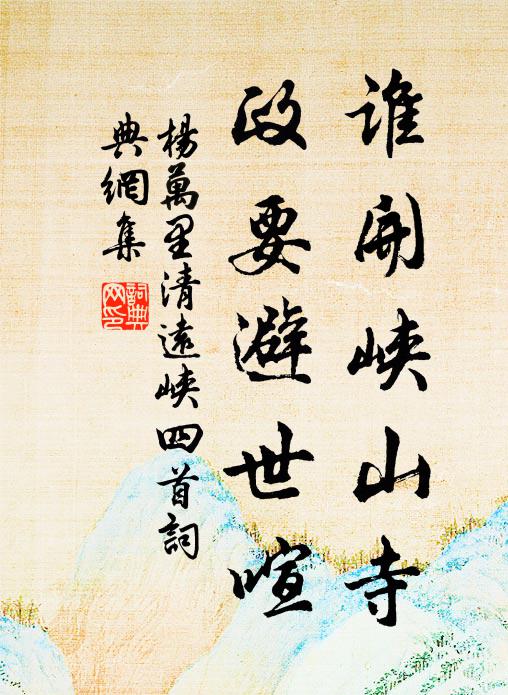 誰開峽山寺
政要避世喧
楊萬里清遠峽四首詞
典網集
詞典
网印